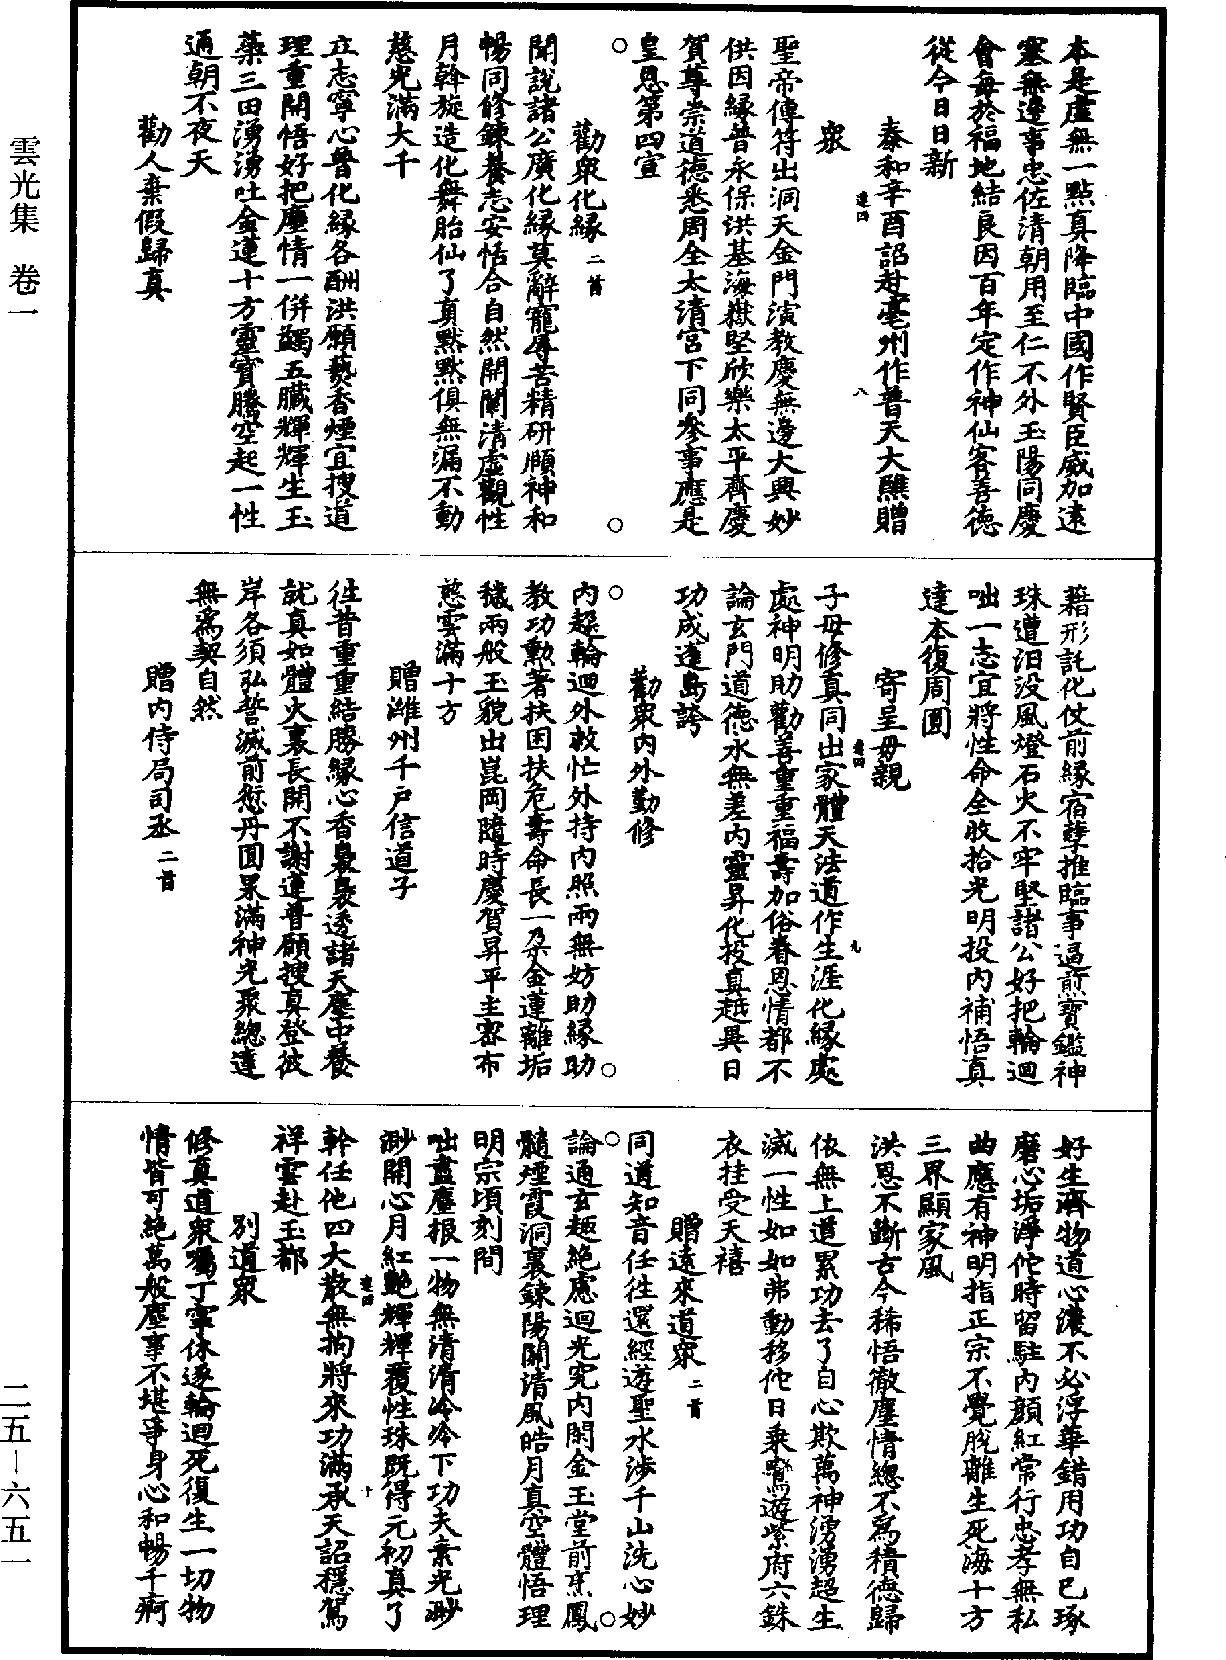 本是虛無一點真降臨中國作賢臣威加遠
塞無邊事忠佐清朝用至仁不外玉陽同慶
會每於福地結良因百年定作神仙客善德
從今日日新
泰和辛酉詔赴亳州作普天大醮贈
衆
聖帝傳符出洞天金門演教慶無邊大興妙
供因緣普永保洪基海嶽堅欣樂太平齊慶
賀尊崇道德悉周全太清宮下同參事應是
皇恩第四宣
勸衆化緣二首
聞說諸公廣化緣莫辭寵辱苦精研頤神和
暢同修鍊養志安恬合自然開闡清虛觀性
月斡旋造化舞胎仙了真默默俱無漏不動
慈光滿大千
立志寧心普化緣各酬洪願爇香煙宜搜道
理重開悟好把塵情一併蠲五臟輝輝生玉
蘂三田湧湧吐金蓮十方靈寶騰空起一性
通朝不夜天
勸人棄假歸真
藉形託化仗前緣宿孽推臨事逼煎寶鑑神
珠遭汨没風燈石火不牢堅諸公好把輪迴
咄一志宜將性命全收拾光明投內補悟真
達本復周圓
寄呈母親
子母修真同出家體天法道作生涯化緣處
處神明助勸善重重福壽加俗眷恩情都不
論玄門道德永無差內靈昇化投真趣異日
功成蓬島誇
勸衆內外勤修
內超輪迴外救忙外持內照兩無妨助緣助
教功勳著扶困扶危壽命長一朶金蓮離垢
穢兩般玉貌出崑岡隨時慶賀昇平主密布
慈雲滿十方
贈濰州千戶信道子
往昔重重結勝緣心香裊裊透諸天塵中養
就真如體火裏長開不謝蓮普願搜真登彼
岸各須弘誓滅前愆丹圓果滿神光聚總達
無爲契自然
贈內侍局司丞二首
好生濟物道心濃不必浮華錯用功自己琢
磨心垢淨佗時留駐內顔紅常行忠孝無私
曲應有神明指正宗不覺脫離生死海十方
三界顯家風
洪恩不斷古今稀悟徹塵情總不爲積德歸
依無上道累功去了自心欺萬神湧湧超生
滅一性如如弗動移佗日乘鸞遊紫府六銖
衣挂受天禧
贈遠來道衆二首
同道知音任往還經遊聖水涉千山洗心妙
論通玄趣絶慮迴光究內閑金玉堂前烹鳳
髓煙霞洞裏鍊陽關清風皓月真空體悟理
明宗頃刻間
咄盡塵根一物無清清泠泠下功夫棄光渺
渺開心月紅艷輝輝覆性珠既得元初真了
幹任他四大散無拘將來功滿承天詔穩駕
祥雲赴玉都
別道衆
修真道衆囑丁寧休逐輪迴死復生一切物
情皆可絶萬般塵事不堪爭身心和暢千痾
雲光集　卷一
二五—六五一